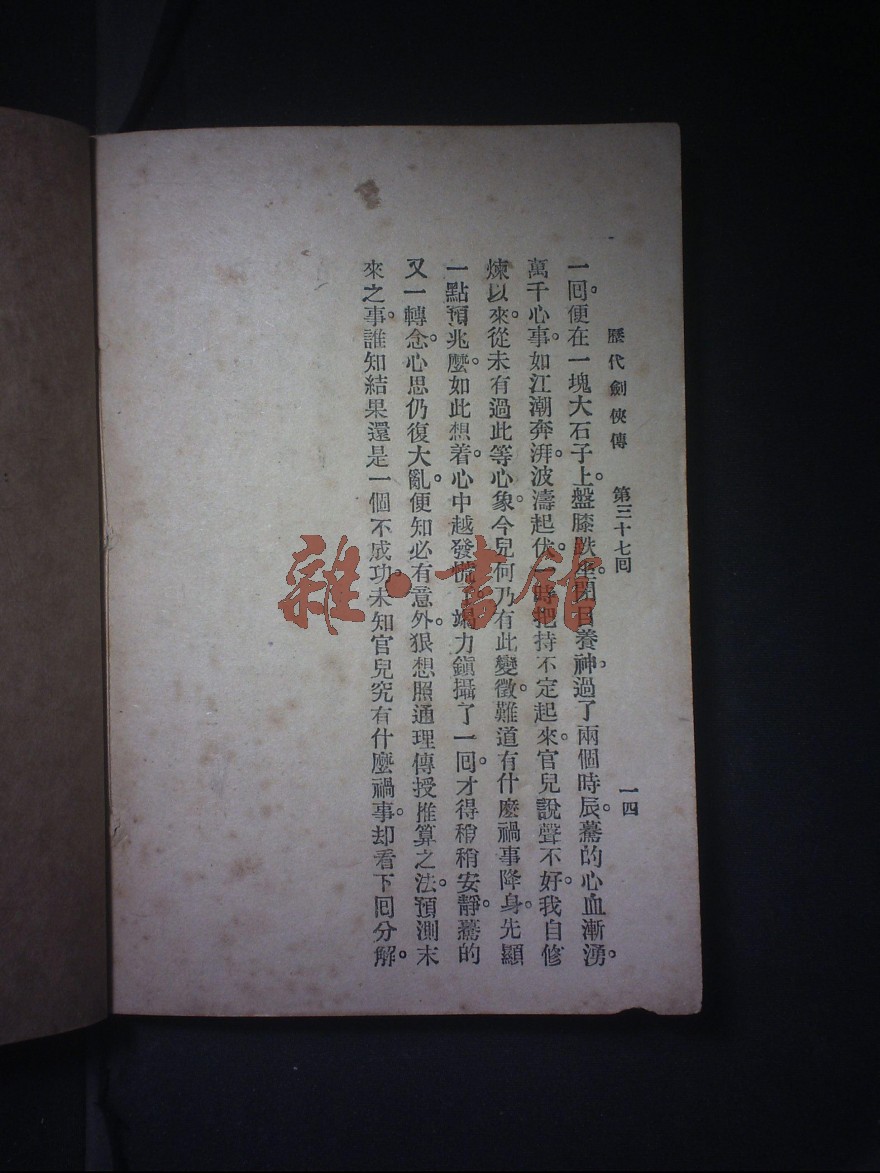 歷代劍俠傳 第三十七回 一四
一回。便在一塊大石子上。盤膝趺坐。閉目養神。過了兩個時辰。驀的心血漸湧。
萬千心事。如江潮奔湃。波濤起伏。一時把持不定起來。官兒說聲不好。我自修
煉以來。從未有過此等心象。今兒何乃有此變徵。難道有什麼禍事降身。先顯
一點預兆麼。如此想着。心中越發慌了。竭力鎭攝了一回。才得稍稍安靜。驀的
又一轉念。心思仍復大亂。便知必有意外。狠想照通理傳授推算之法。預測末
來之事。誰知結果還是一個不成功。未知官兒究有什麼禍事。却看下回分解。
雜·書館